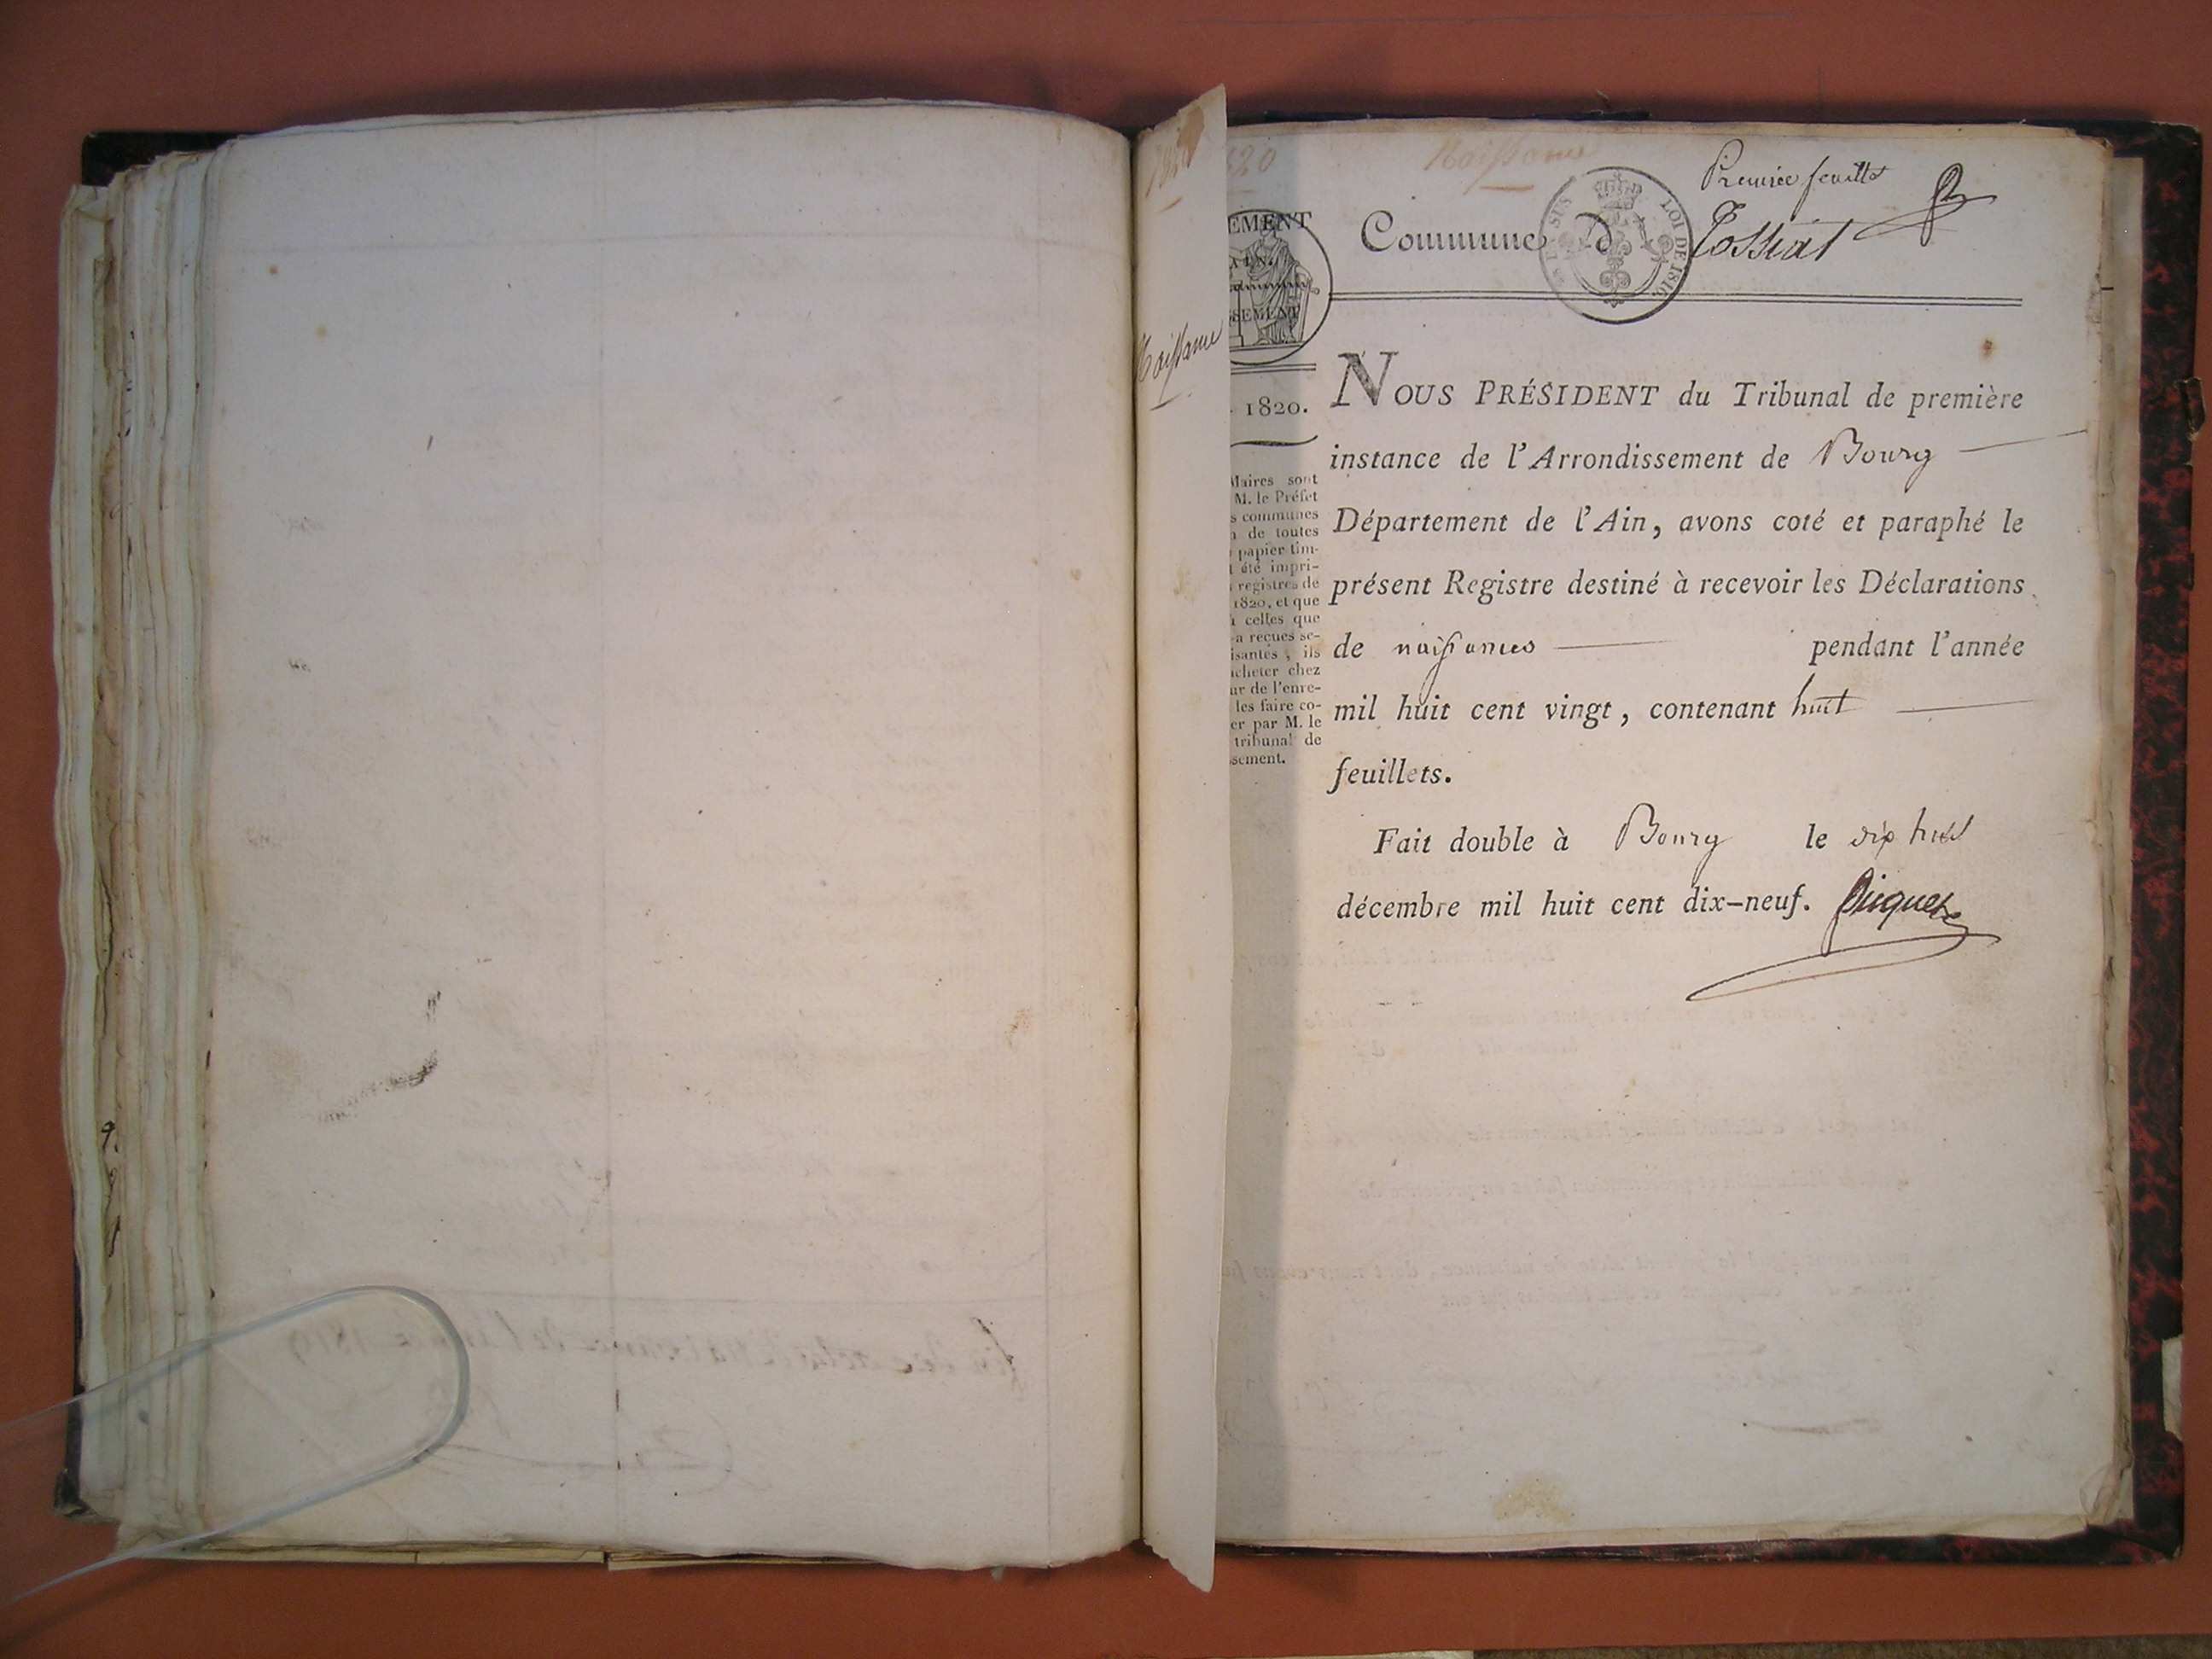 1820
Naissance
820
Naissance
Première feuillet
Commune d Tossiat
EMENT
AIN.
SSEMENT
SUS
LOI DE 1816
1820.
Maires sont
M. le Préfet
s communes
n de toutes
papier tim-
été impri-
registres de
1820, et que
à celles que
a reçues se-
isantes, ils
acheter chez
ur de l'enre-
les faire co-
er par M. le
tribunal de
ssement.
NOUS PRÉSIDENT du Tribunal de première
instance de l'Arrondissement de Bourg
Département de l'Ain, avons coté et paraphé le
présent Registre destiné à recevoir les Déclarations
de naissances pendant l'année
mil huit cent vingt, contenant huit
feuillets.
Fait double à Bourg le dix huit
décembre mil huit cent dix-neuf. Picquet